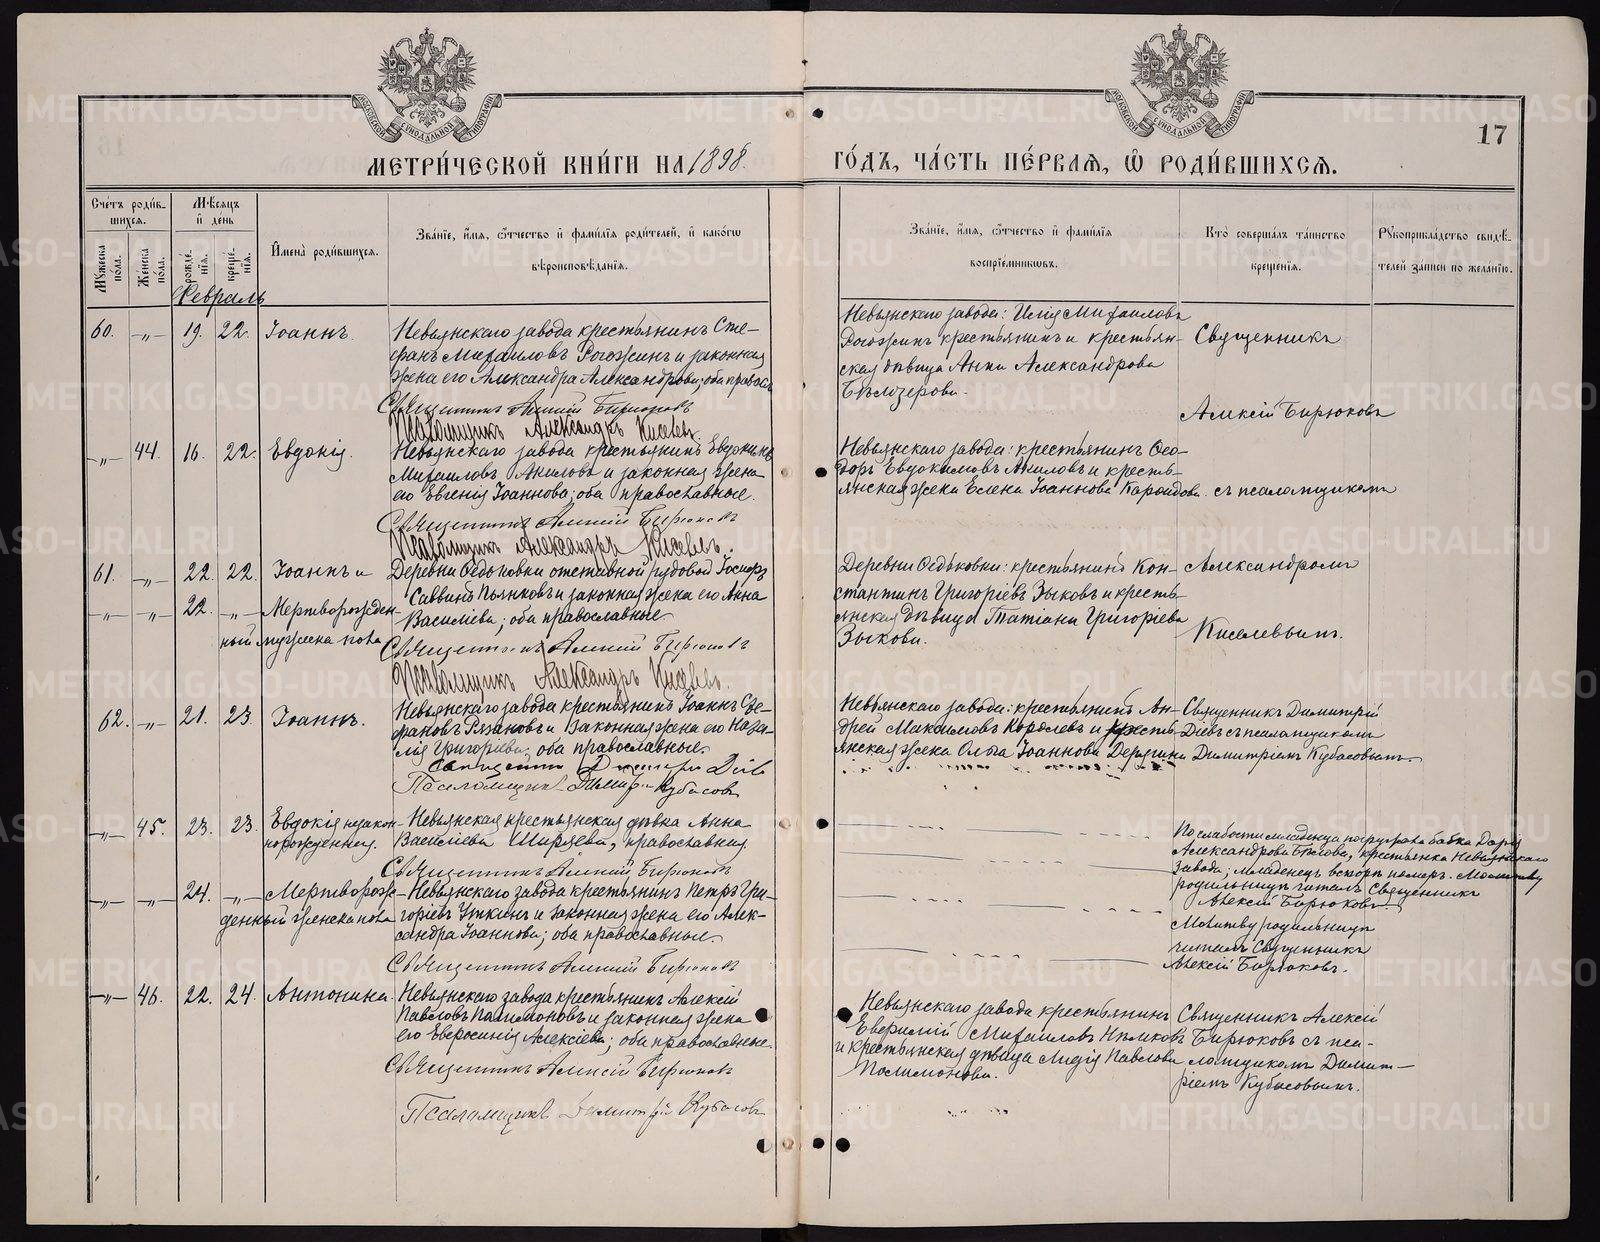 МЕТРИ́ЧЕСКОЙ КНИ́ГИ НА 1898.
ГО́ДЪ, ЧА́СТЬ ПЕ́РВАЯ, Ѿ РОДИ́ВШИХСЯ.
17
Сче́тъ роди́в-
шихся.
Мѣ́сяцъ
и҆ де́нь
Мꙋ́жеска
по́ла.
Же́нска
по́ла.
рожде́-
нїя.
креще́-
нїя.
И҆мена̀ роди́вшихся.
Зва́нїе, и҆́мя, ѻ҆́тчество и҆ фами́лїя роди́телей, и҆ како́гѡ
вѣроисповѣ́данїя.
Зва́нїе, и҆́мя, ѻ҆́тчество и҆ фами́лїя
воспрїе́мникѡвъ.
Кто̀ соверша́лъ та́инство
креще́нїя.
Рꙋкоприкла́дство свидѣ́-
телей за́писи по жела́нїю.
Февраль
60. -„- 19. 22. Іоаннъ.
Невьянскаго завода крестьянинъ Сте-
фанъ Михаиловъ Рогожинъ и законная
жена его Александра Александрова; оба правосл.
Священникъ Алексій Бирюковъ
Псаломщикъ Александръ Киселевъ.
Невьянскаго завода: Илія Михаиловъ
Рогожинъ крестьянинъ и крестьян-
ская дѣвица Анна Александрова
Бѣлозерова.
Священникъ
Алексій Бирюковъ
-„- 44. 16. 22. Евдокія.
Невьянскаго завода крестьянинъ Евдокимъ
Михаиловъ Акиловъ и законная жена
его Евгенія Іоаннова; оба православные.
Священникъ Алексій Бирюковъ
Псаломщикъ Александръ Киселевъ.
Невьянскаго завода: крестьянинъ Ѳео-
доръ Евдокимовъ Акиловъ и кресть-
янская жена Елена Іоаннова
съ псаломщикомъ
61. -„- 22. 22. Іоаннъ и
-„- -„- 22. -„- Мертворожден-
ный мужска пола
Деревни Ѳедьковки отставной рядовой
Саввинъ Пьянковъ и законная жена его Анна
Василіева; оба православные.
Священникъ Алексій Бирюковъ
Псаломщикъ Александръ Киселевъ.
Деревни Ѳедьковки: крестьянинъ Кон-
стантинъ Григоріевъ Зыковъ и кресть-
янская дѣвица Татіана Григоріева
Зыкова.
Александромъ
Киселевымъ.
62. -„- 21. 23. Іоаннъ.
Невьянскаго завода крестьянинъ Іоаннъ Сте-
фановъ Рязановъ и законная жена его Ната-
лія Григоріева, оба православные.
Священникъ Димитрій Діевъ
Псаломщикъ Димитрій Кубасовъ
Невьянскаго завода: крестьянинъ Ан-
дрей Максимовъ Королевъ и кресть-
янская жена Ольга Іоаннова Дерягина
Священникъ Димитрій
Діевъ съ псаломщикомъ
Димитріемъ Кубасовымъ.
-„- 45. 23. 23. Евдокія незакон-
норожденная.
Невьянская крестьянская дѣвка Анна
Василіева Ширяева, православная.
Священникъ Алексій Бирюковъ
По слабости младенца погружала бабка Дарія
Александрова Бѣлова, крестьянка Невьянскаго
завода; младенецъ вскорѣ померъ. Молитву
родильницѣ читалъ Священникъ
Алексій Бирюковъ.
-„- -„- 24. -„- Мертворож-
денный женска пола
Невьянскаго завода крестьянинъ Петръ Гри-
горіевъ Уткинъ и законная жена его Алек-
сандра Іоаннова; оба православные.
Священникъ Алексій Бирюковъ
Молитву родильницѣ
читалъ Священникъ
Алексій Бирюковъ.
-„- 46. 22. 24. Антонина.
Невьянскаго завода крестьянинъ Алексій
Павловъ Палимоновъ и законная жена
его Евфросинія Алексіева; оба православные.
Священникъ Алексій Бирюковъ
Псаломщикъ Димитрій Кубасовъ
Невьянскаго завода крестьянинъ
Евфимій Михаиловъ
и крестьянская дѣвица Лидія Павлова
Палимонова.
Священникъ Алексій
Бирюковъ съ пса-
ломщикомъ Димит-
ріемъ Кубасовымъ.
METRIKI.GASO-URAL.RU